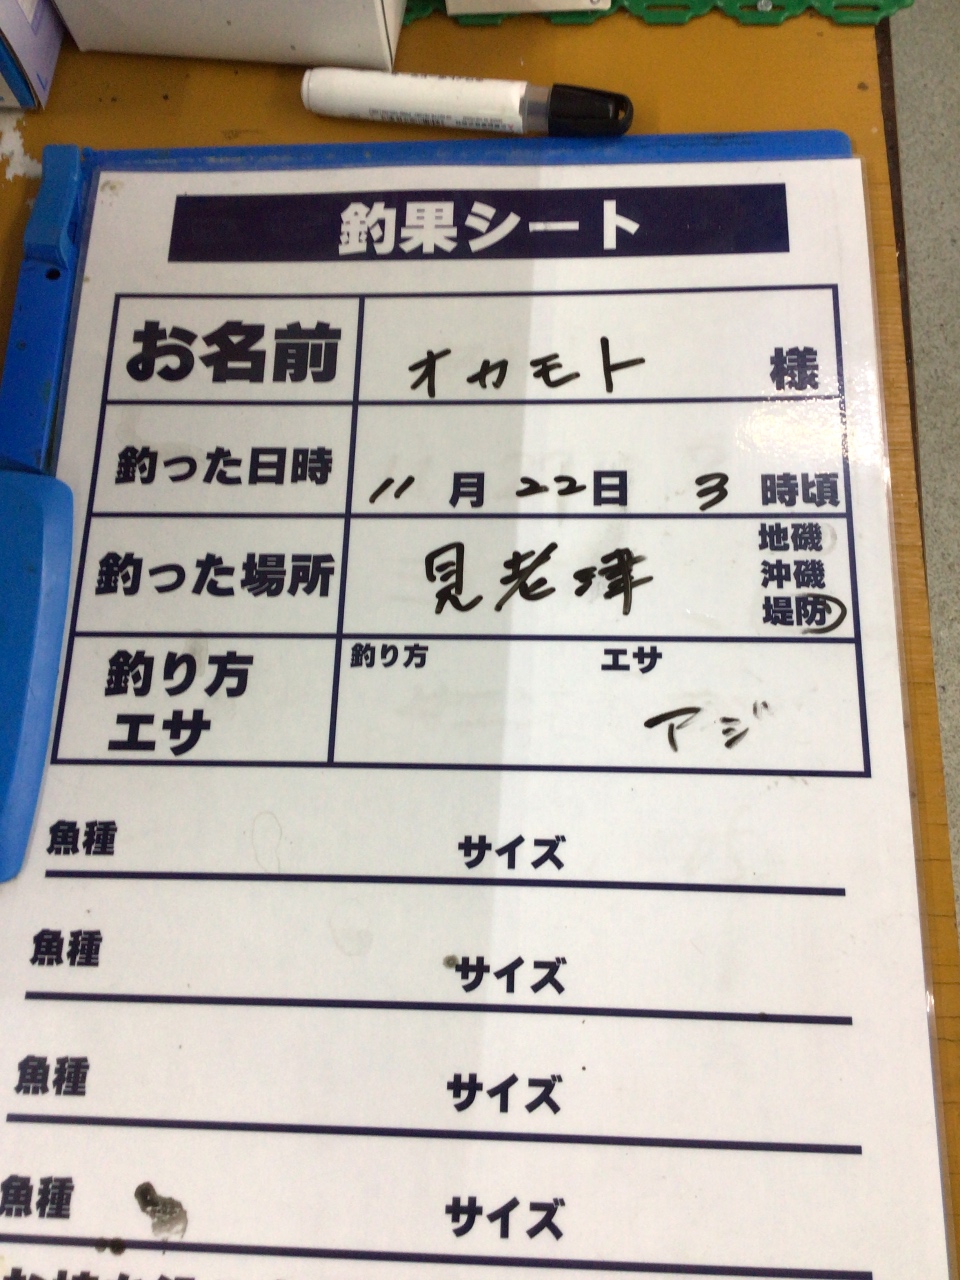 釣果シート
お名前 オカモト 様
釣った日時 11月22日 3時頃
釣った場所 見老津 地磯
沖磯
堤防
釣り方 釣り方 エサ
エサ アジ
魚種 サイズ
魚種 サイズ
魚種 サイズ
魚種 サイズ